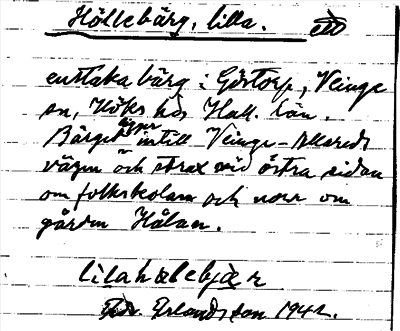 Höllebärg, lilla. ett
enstaka bärg i Göstorp, Veinge
sn, Höks hd, Hall. län.
Bärget ligger intill Veinge-
vägen och strax vid östra sidan
om folkskolan och norr om
gården Hålan.
lilahælebjær
Erlandsson 1942.